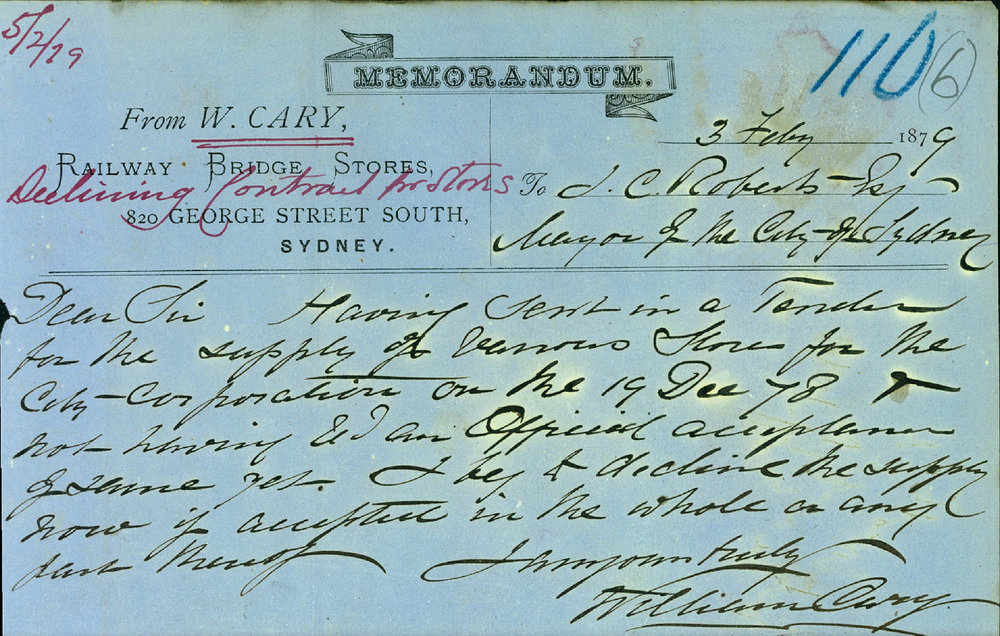 5/2/79
110
(6)
MEMORANDUM.
From W. CARY,
RAILWAY BRIDGE STORES,
Declining Contract for Stores
820 GEORGE STREET SOUTH,
SYDNEY.
3 Feby 1879
To J. C. Roberts Esq
Mayor of the City of Sydney
Dear Sir Having Sent in a Tender
for the supply of Various Stores for the
City Corporation on the 19 Dec 78 &
not having Recd an Official acceptance
of same yet. I beg to decline the supply
now if accepted in the whole or any
part thereof
I am yours truly
William Cary.